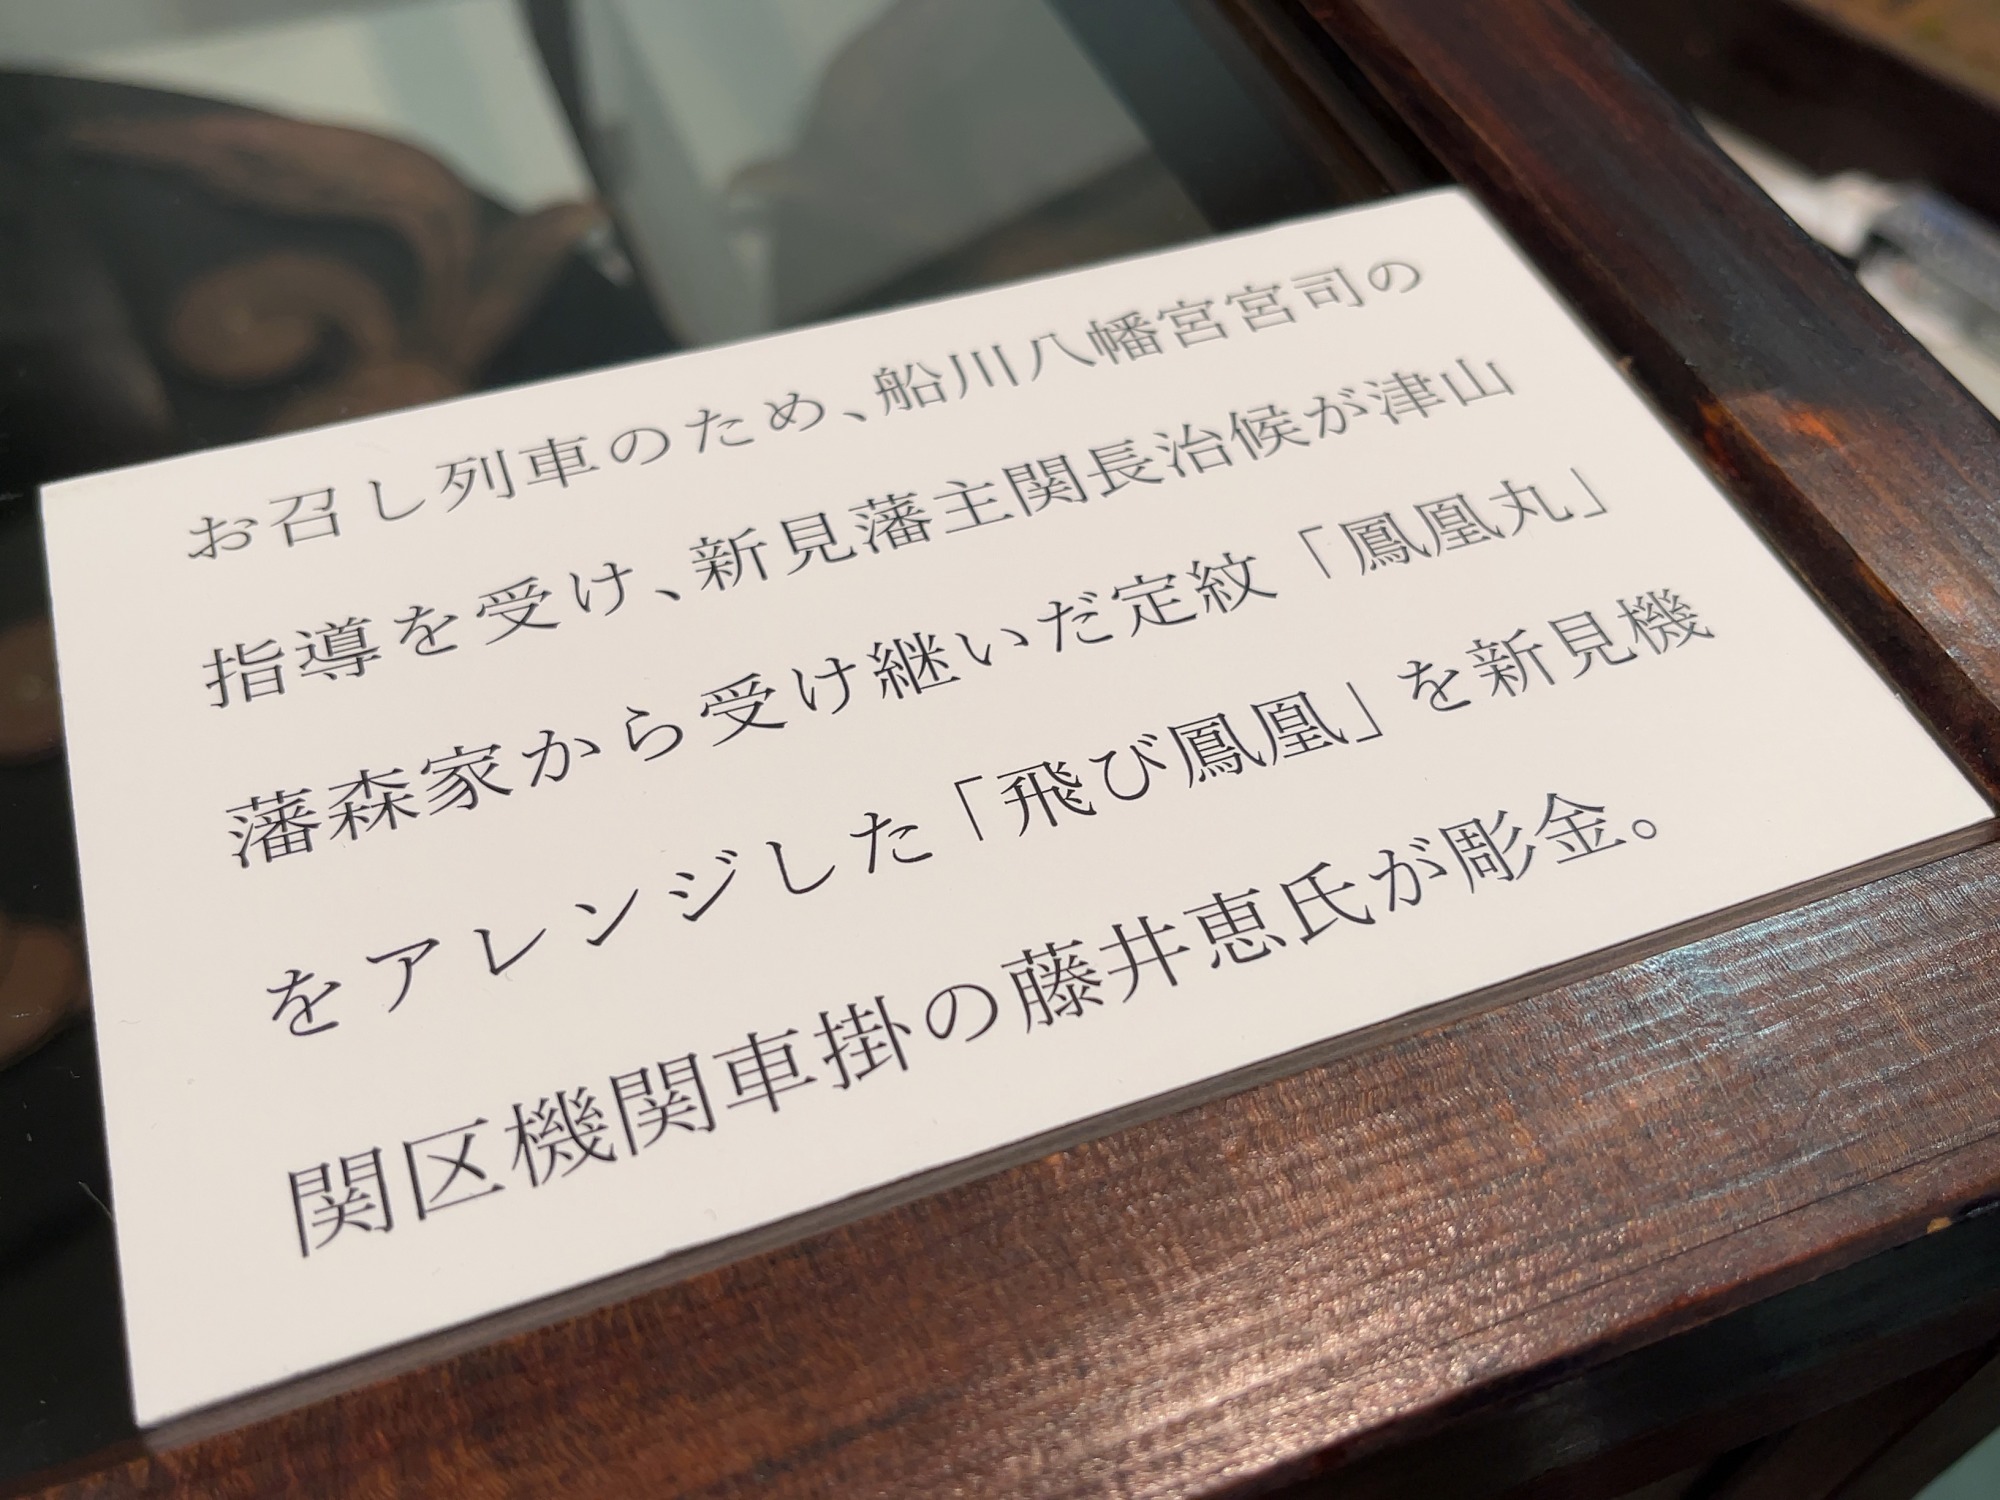 お召し列車のため、船川八幡宮宮司の
指導を受け、新見藩主関長治候が津山
藩森家から受け継いだ定紋「鳳凰丸」
をアレンジした「飛び鳳凰」を新見機
関区機関車掛の藤井恵氏が彫金。